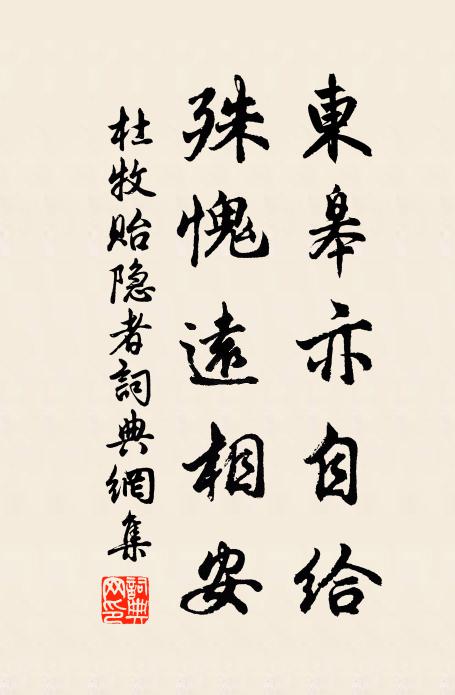 東皋亦自給
殊愧遠相安
杜牧貽隐者詞典網集
詞典网印